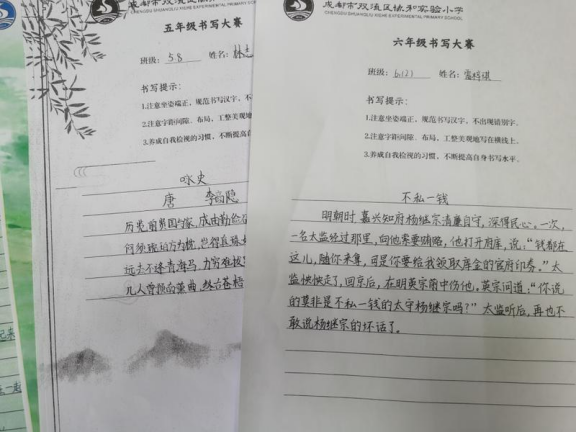 成都市双流区协和实验小学
CHENGDU SHUANGLIU XIEHE EXPERIMENTAL PRIMARY SCHOOL
五年级书写大赛
班级: 5.8 姓名:
书写提示:
1.注意坐姿端正,规范书写汉字,不
2.注意字距间隙、布局,工整美观地
3.养成自我检视的习惯,不断提高自
咏史
唐 李商隐
历览前贤国与家,成由勤俭
何须琥珀方为枕,岂得真珠
运去不逢青海马,力穷难拔
几人曾预南薰曲,终古苍梧
成都市双流区协和实验小学
CHENGDU SHUANGLIU XIEHE EXPERIMENTAL PRIMARY SCHOOL
六年级书写大赛
班级: 6.12 姓名:
书写提示:
1.注意坐姿端正,规范书写汉字,不出现错别字。
2.注意字距间隙、布局,工整美观地写在横线上。
3.养成自我检视的习惯,不断提高自身书写水平。
不私一钱
明朝时嘉兴知府杨继宗清廉自守,深得民心。一次,
一名太监经过那里,向他索要贿赂,他打开府库,说:“钱都在
这儿,随你来拿,可是你要给我领取库金的官府印券。”太
监怏怏走了,回京后,在明英宗前中伤他,英宗问道:“你说
的莫非是不私一钱的太守杨继宗吗?”太监听后,再也不
敢说杨继宗的坏话了。